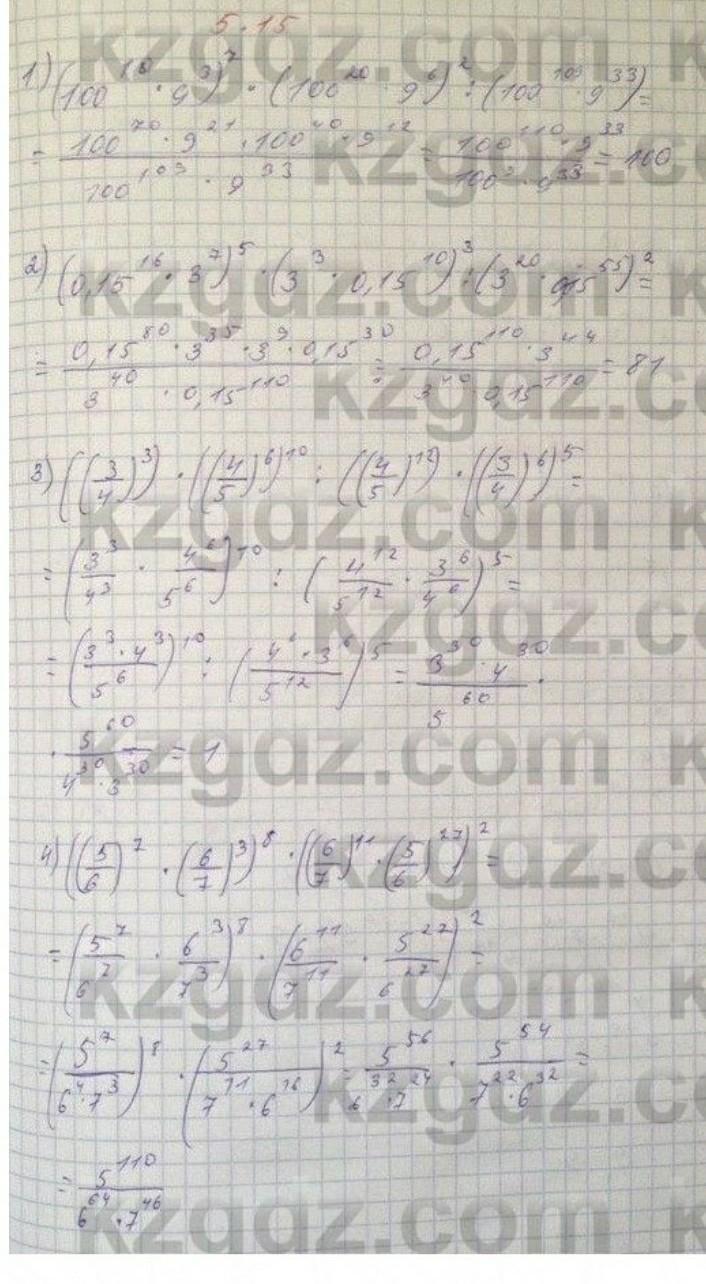 5.15
1) (100^10 · 9^3)^7 · (100^20 · 9^6)^2 : (100^109 · 9^33) =
= (100^70 · 9^21 · 100^40 · 9^12) / (100^109 · 9^33) = (100^110 · 9^33) / (100^109 · 9^33) = 100
2) (0,15^16 · 3^7)^5 · (3^3 · 0,15^10)^3 : (3^20 · 0,15^55)^2 =
= (0,15^80 · 3^35 · 3^9 · 0,15^30) / (3^40 · 0,15^110) = (0,15^110 · 3^44) / (3^40 · 0,15^110) = 81
3) ((3/4)^3) · ((4/5)^6)^10 : ((4/5)^12) · ((3/4)^6)^5 =
= (3^3/4^3 · 4^6/5^6)^10 : (4^12/5^12 · 3^6/4^6)^5 =
= ((3^3 · 4^3)/5^6)^10 : ((4^6 · 3^6)/5^12)^5 = (3^30 · 4^30)/5^60 ·
· 5^60/(4^30 · 3^30) = 1
4) ((5/6)^7 · (6/7)^3)^8 · ((6/7)^11 · (5/6)^27)^2 =
= (5^7/6^7 · 6^3/7^3)^8 · (6^11/7^11 · 5^27/6^27)^2 =
= (5^7/(6^4 · 7^3))^8 · (5^27/(7^11 · 6^16))^2 = 5^56/(6^32 · 7^24) · 5^54/(7^22 · 6^32) =
= 5^110/(6^64 · 7^46)
kzgdz.com